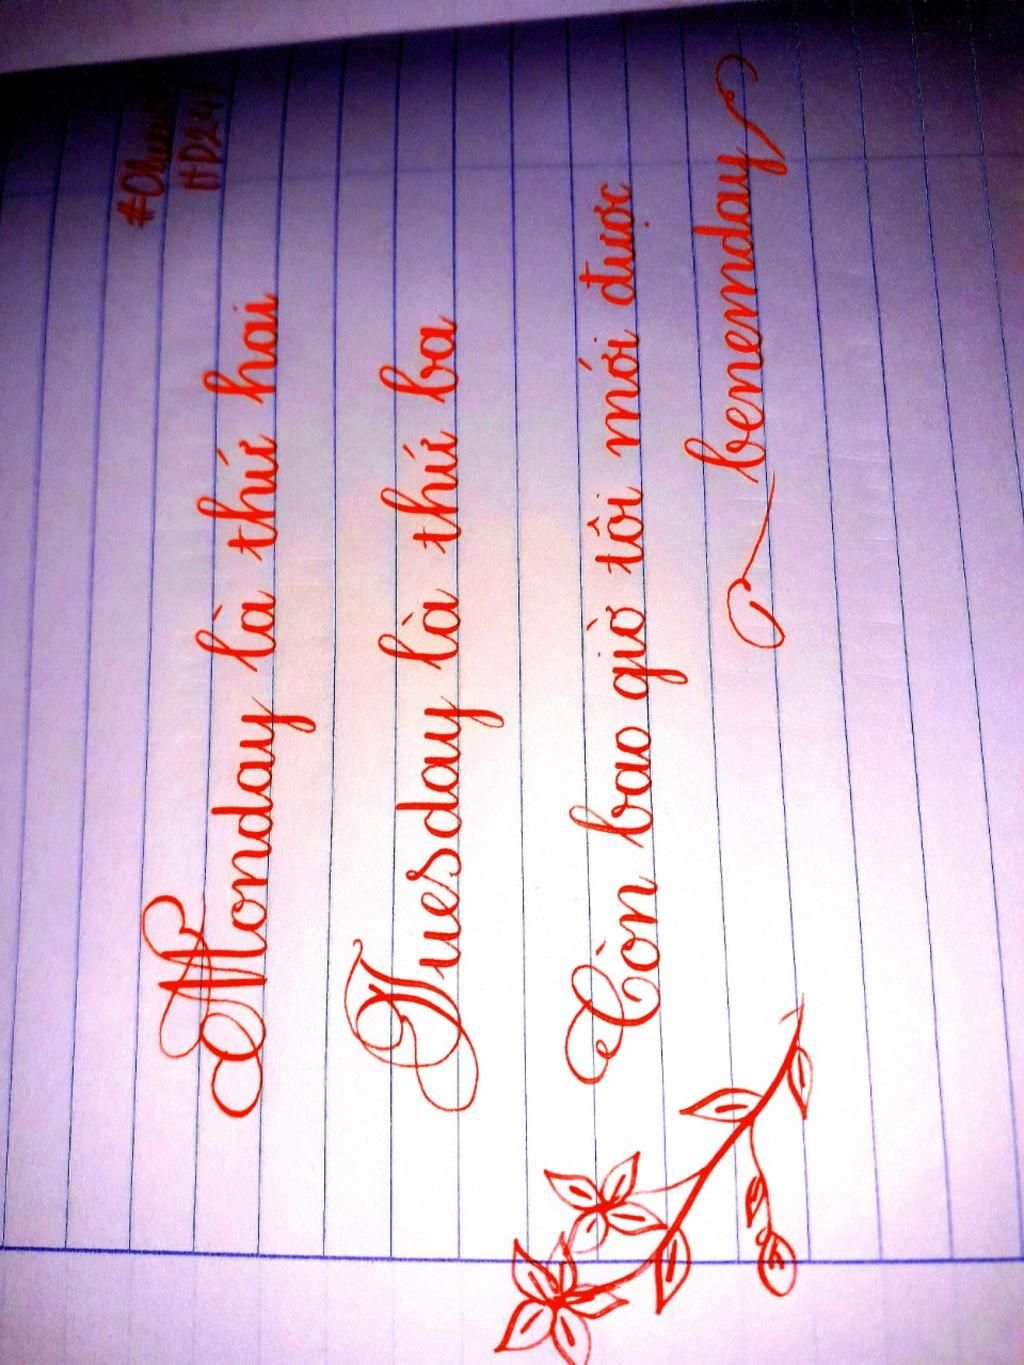 Monday là thứ hai
Tuesday là thứ ba
Còn bao giờ tôi mới được
benemday